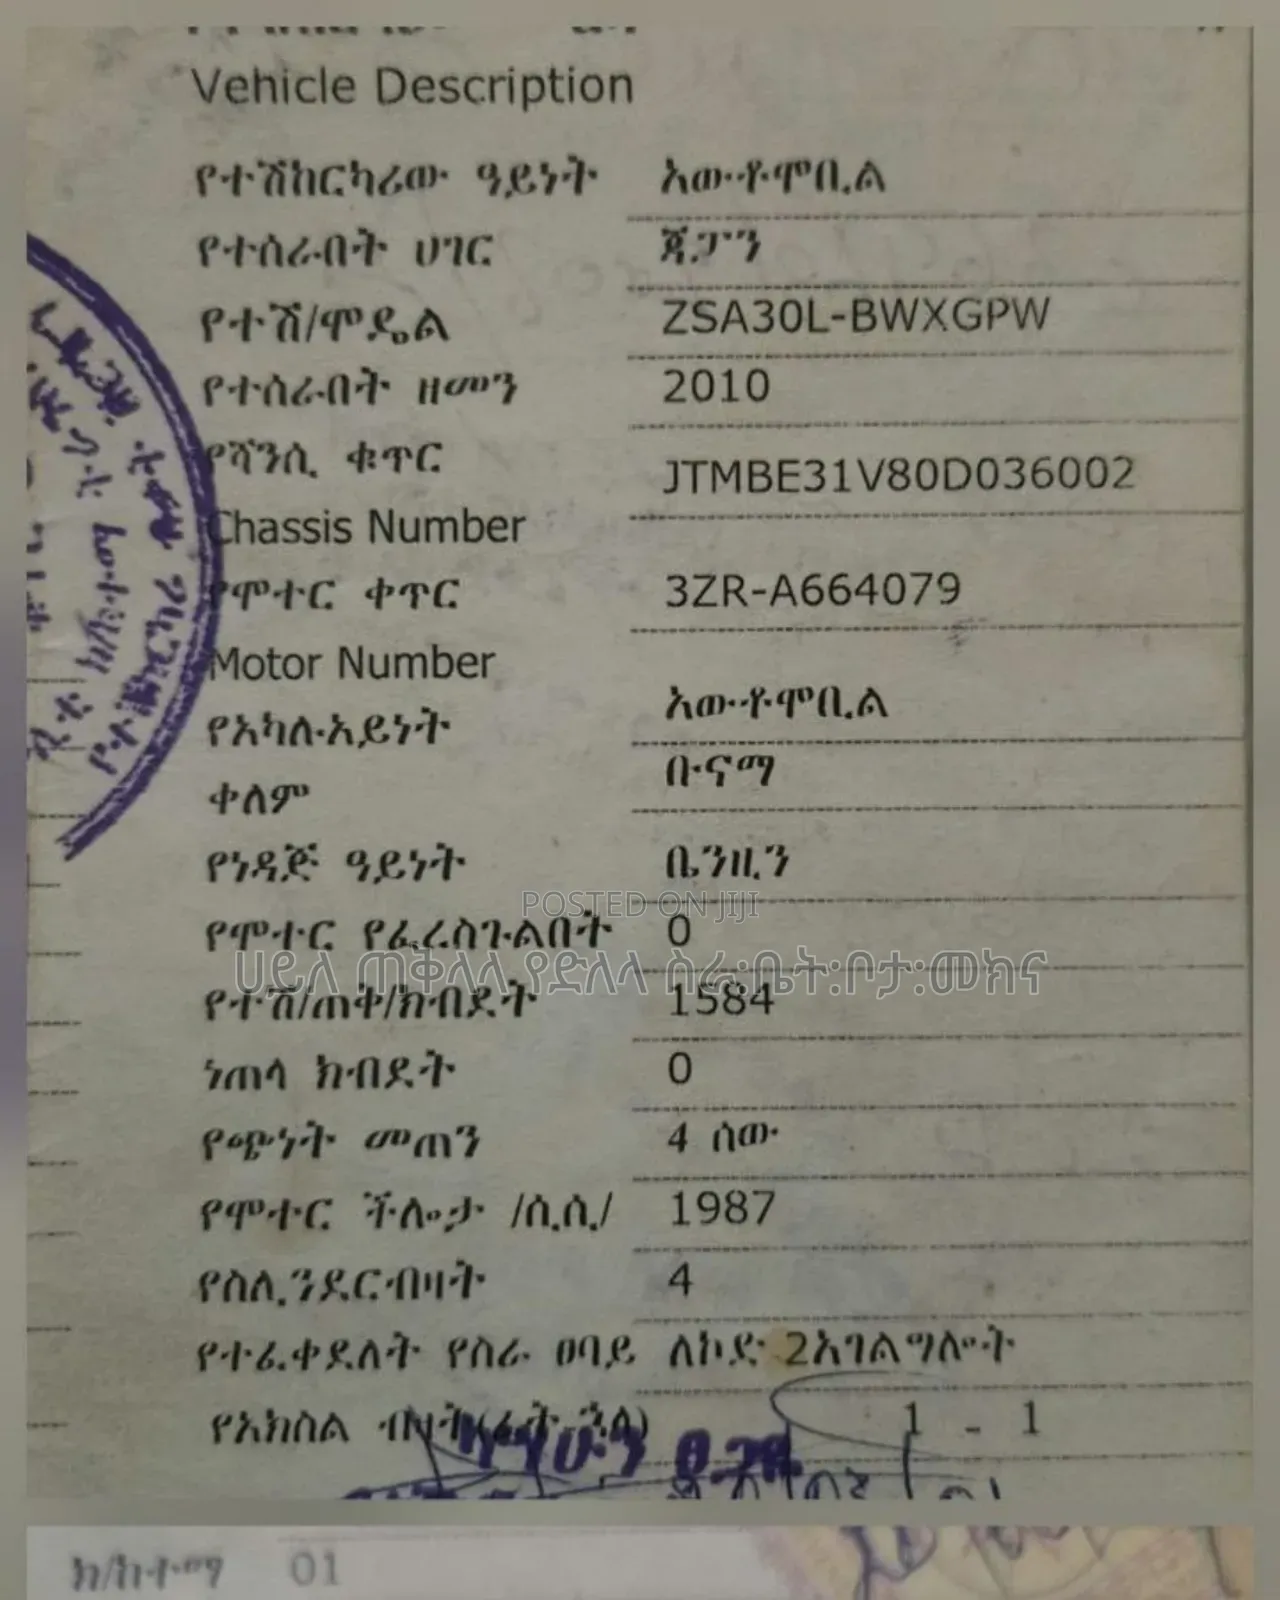 Vehicle Description
የተሽከርካሪው ዓይነት አውቶሞቢል
የተሰራበት ሀገር ጃፓን
የተሽ/ሞዴል ZSA30L-BWXGPW
የተሰራበት ዘመን 2010
የሻንሲ ቁጥር JTMBE31V80D036002
Chassis Number
የሞተር ቀጥር 3ZR-A664079
Motor Number
የአካሉአይነት አውቶሞቢል
ቀለም ቡናማ
የነዳጅ ዓይነት ቤንዚን
POSTED ON JIJI
የሞተር የፈረስጉልበት 0
ሀይለ ጠቅላላ የድለላ ስራ:ቤት:ቦታ:መክና
የተሽ/ጠቅ/ክብደት 1584
ነጠላ ክብደት 0
የጭነት መጠን 4 ሰው
የሞተር ችሎታ /ሲ.ሲ/ 1987
የስሊንደርብዛት 4
የተፈቀደለት የስራ ፀባይ ለኮድ 2አገልግሎት
የአክስል ብዛት 1 - 1
ክ/ከተማ 01